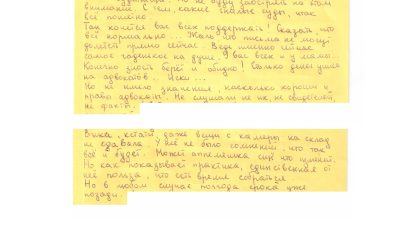 внимания. С чем
всё понятно
Так хочется вас всех поддержать! Сказать, что
всё нормально... Жаль что письма не могут
долететь прямо сейчас. Ведь именно сейчас
самое гадостное на душе. У вас всех и у мамы.
Конечно злость берёт и обидно! Столько денег ушло
на адвокатов. Иски...
Но не имело значения, насколько хороши и
правы адвокаты. Не слушали не их, не свидетелей,
не факты.
Вика, кстати, даже вещи с камеры на склад
не сдавала. У неё не было сомнений, что так
всё и будет. Может апелляшка ещё что изменит.
Но как показывает практика, единственная от
неё польза, что есть время собраться.
Но в любом случае полгода срока уже
позади.